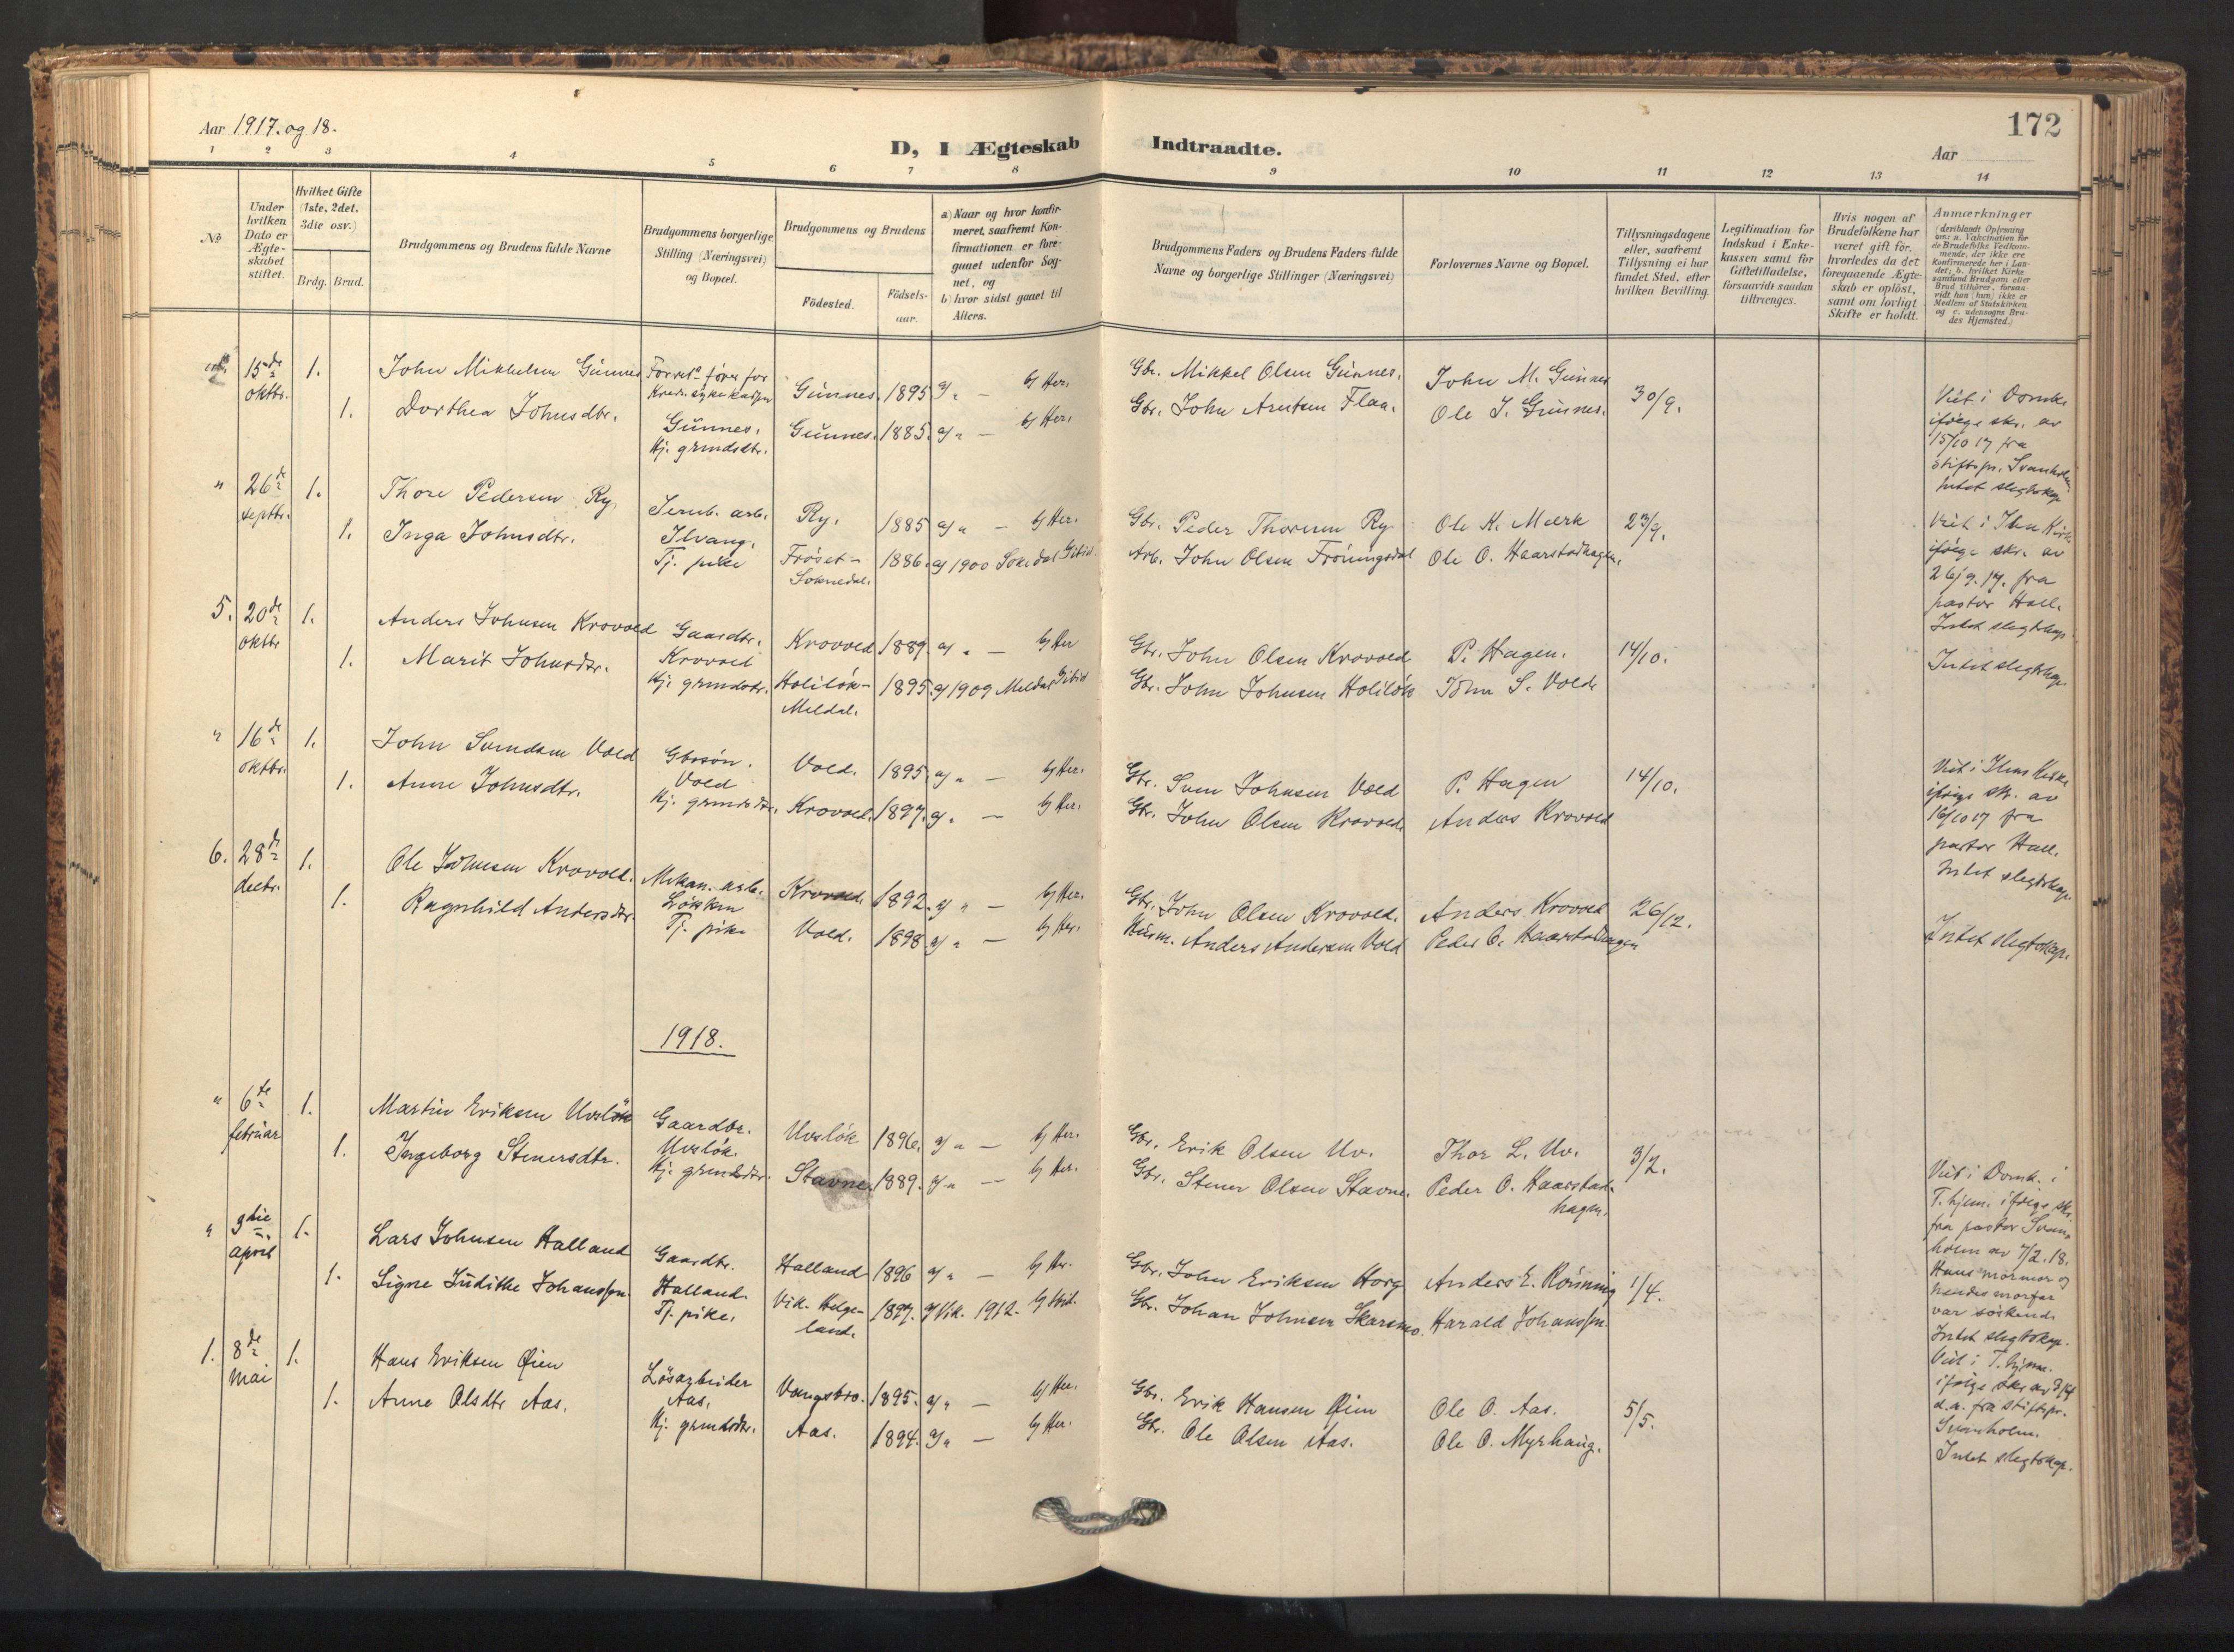 Aar 1917. og 18.
D, I Ægteskab Indtraadte.
172
Aar
1 2 3 4 5 6 7 8 9 10 11 12 13 14
No
Under hvilken Dato er Ægte-skabet stiftet.
Hvilket Gifte (1ste, 2det, 3die osv.)
Brdg. Brud.
Brudgommens og Brudens fulde Navne
Brudgommens borgerlige Stilling (Næringsvei) og Bopæl.
Brudgommens og Brudens
Födested.
Födsels-aar.
a) Naar og hvor konfir-meret, saafremt Kon-firmationen er fore-gaaet udenfor Sog-net, og
b) hvor sidst gaaet til Alters.
Brudgommens Faders og Brudens Faders fulde Navne og borgerlige Stillinger (Næringsvei)
Forlovernes Navne og Bopæl.
Tillysningsdagene eller, saafremt Tillysning ei har fundet Sted, efter hvilken Bevilling.
Legitimation for Indskud i Enke-kassen samt for Giftetilladelse, forsaavidt saadan tiltrænges.
Hvis nogen af Brudefolkene har været gift för, hvorledes da det foregaaende Ægte-skab er oplöst, samt om lovligt Skifte er holdt.
Anmærkninger (deriblandt Oplysning om: a. Vakcination for de Brudefolks Vedkom-mende, der ikke ere konfirmerede her i Lan-det; b. hvilket Kirke-samfund Brudgom eller Brud tilhörer, forsaa-vidt han (hun) ikke er Medlem af Statskirken og c. udensogns Bru-des Hjemsted.)
15de oktbr. 1. John Mikkelsen Günnes Günnes. 1895 a/ " — b/ Her. Gbr. Mikkel Olsen Günnes. John M. Günnes 30/9.
1. Dorthea Johnsdtr. Günnes. Hj. grmdsdtr. Günnes. 1885. a/ " — b/ Her. Gbr. John Arntsen Flaa. Ole J. Günnes.
Viet i Domk. ifølge skr. av 15/10 17 fra stiftspr. Svanholm. Intet slegtskap
" 26de septbr. 1. Thore Pedersen Ry. Jernb. arb. Ilvang. Ry. 1885 a/ " — b/ Her. Gbr. Peder Thoresen Ry Ole K. Mærk 23/9.
1. Inga Johnsdtr. Tj. pike Fröset-Soknedal. 1886. a/ 1900 Soknedal b/ ibid. Arb. John Olsen Fröningsdal Ole O. Haarstadhagen.
Viet i Ilen Kirke ifølge skr. av 26/9. 17. fra pastor Hall. Intet slegtskap
5. 20de oktbr 1. Anders Johnsen Krovold Gaardbr. Krovold Krovold 1889. a/ " — b/ Her Gbr. John Olsen Krovold P. Hagen. 14/10.
1. Marit Johnsdtr. Hj. grmdsdtr. Holilök-Meldal. 1895. a/ 1909 Meldal b/ ibid Gbr. John Johnsen Holilök John S. Vold.
Intet slegtskap.
" 16de oktbr. 1. John Svendsen Vold Gbrsön. Vold Vold. 1895. a/ " — b/ Her. Gbr. Sven Johnsen Vold P. Hagen 14/10.
1. Anne Johnsdtr. Hj. grmdsdtr. Krovold. 1897. a/ " — b/ Her. Gbr. John Olsen Krovold Anders Krovold
Viet i Ilens Kirke ifølge skr. av 16/10 17 fra pastor Hall. Intet slegtskap
6. 28de decbr. 1. Ole Johnsen Krovold. Mekan. arb. Løkken Krovold. 1892. a/ " — b/ Her. Gbr. John Olsen Krovold. Anders Krovold 26/12.
1. Ragnhild Andersdtr. Tj. pike Vold. 1898 a/ " — b/ Her. Husm. Anders Andersen Vold Peder O. Haarstadhagen
Intet slegtskap.
1918.
" 6te februar 1. Martin Eriksen Uvslök Gaardbr. Uvslök. Uvslök 1896. a/ " — b/ Her. Gbr. Erik Olsen Uv. Thor L. Uv. 3/2.
1. Ingeborg Stenersdtr. Hj. grmdsdtr. Stavne. 1889. a/ " — b/ Her. Gbr. Stener Olsen Stavne. Peder O. Haarstad-hagen.
Viet i Domk. i T.hjem. ifølge skr. fra pastor Svan-holm av 7/2. 18. Hans mormor og hendes morfar var söskend.
" 3die april 1. Lars Johnsen Halland Gaardbr. Halland. Halland 1896 a/ " — b/ Her. Gbr. John Eriksen Horg Anders E. Rönning 1/4.
1. Signe Judithe Johanssen Tj. pike. Vik. Helge-land. 1897. a/ Vik. 1912. b/ ibid. Gbr. Johan Johnsen Skarsmo. Harald Johanssen
Intet slegtskap. Viet i T.hjem. ifølge skr av 3/4 d.a. fra stiftspr. Svanholm.
1. 8de mai 1. Hans Eriksen Øien Lösarbeider Aas. Vangsbro. 1895. a/ " — b/ Her. Gbr. Erik Hansen Øien Ole O. Aas. 5/5.
1. Anne Olsdtr Aas. Hj. grmdsdtr. Aas. 1894. a/ " — b/ Her. Gbr. Ole Olsen Aas. Ole O. Myrhaug.
Intet slegtskap.